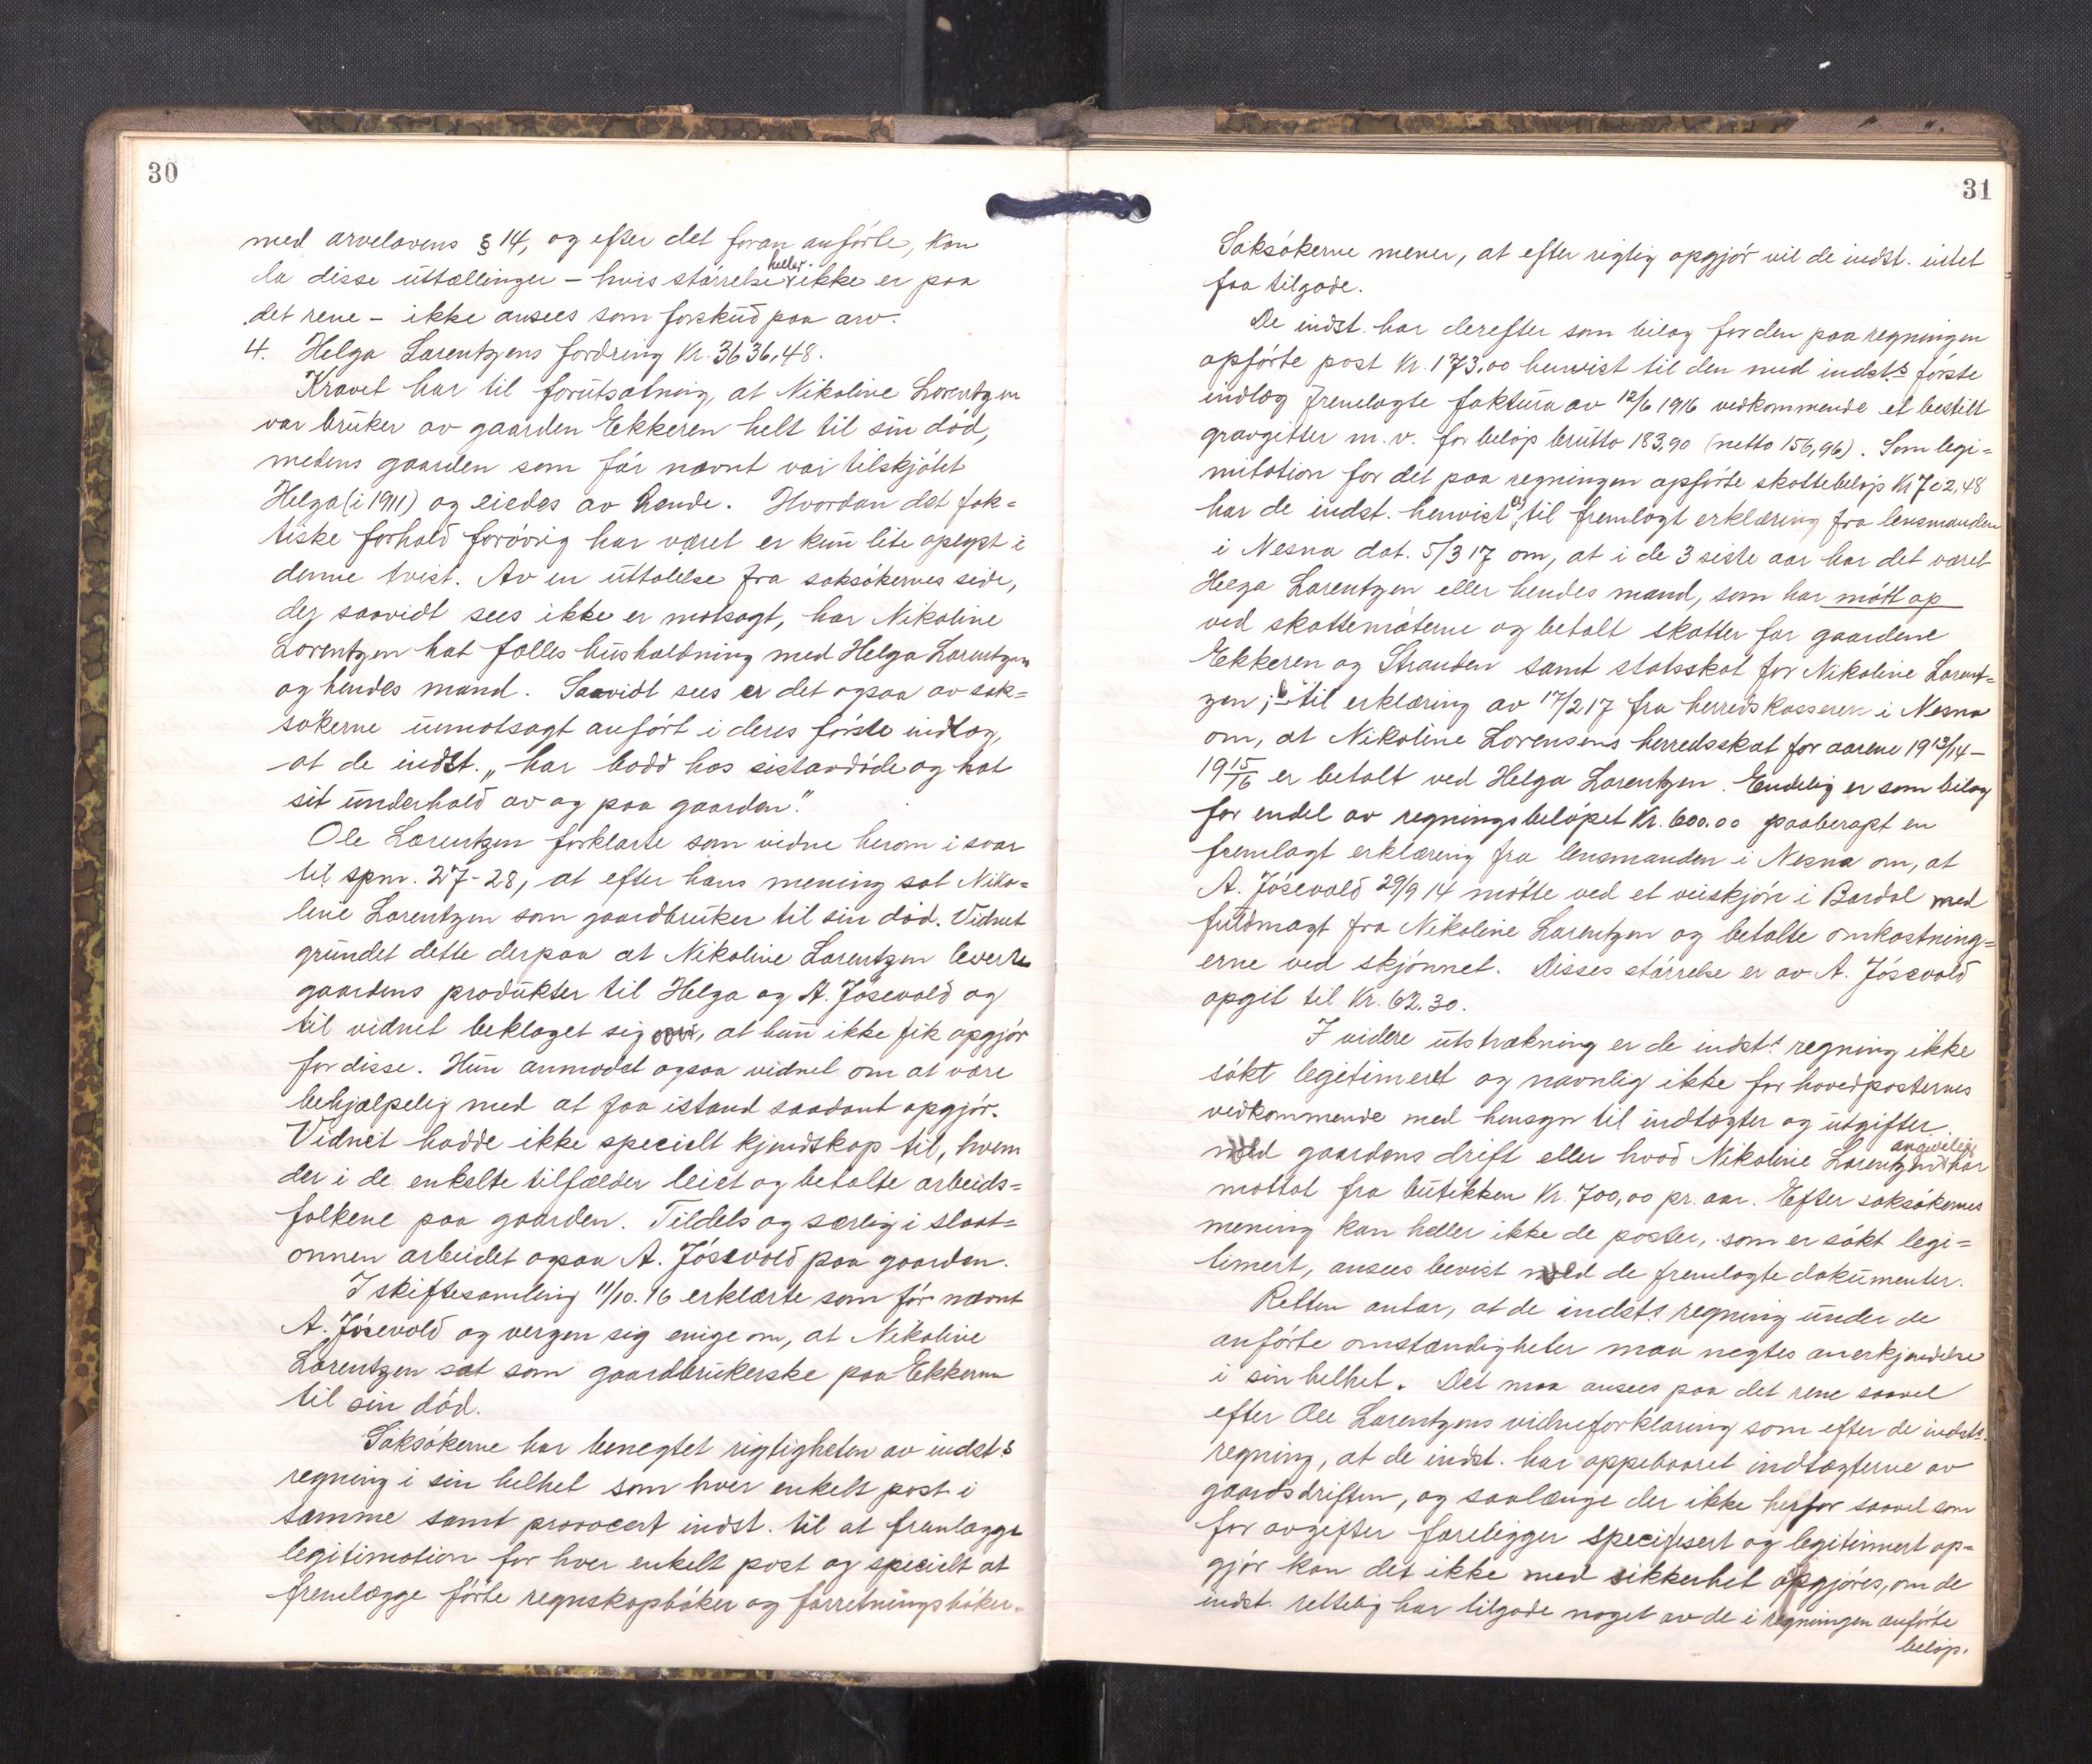 30
med arvelovens § 14, og efter det foran anførte, kan
da disse uttællinger – hvis størrelse heller ikke er paa
det rene – ikke ansees som forskud paa arv.
4. Helga Lorentzens fordring Kr. 3636,48.
Kravet har til forutsætning, at Nikoline Lorentzen
var bruker av gaarden Ekkeren helt til sin død,
medens gaarden som før nævnt var tilskjøtet
Helga (i 1911) og eiedes av hende. Hvordan det fak=
tiske forhold forøvrig har været er kun lite oplyst i
denne tvist. Av en uttalelse fra saksøkernes side,
der saavidt sees ikke er motsagt, har Nikoline
Lorentzen hat fælles husholdning med Helga Lorentzen
og hendes mand. Saavidt sees er det ogsaa av sak=
søkerne umotsagt anført i deres første indlæg,
at de indst. „har bodd hos sistavdøde og hat
sit underhold av og paa gaarden."
Ole Lorentzen forklarte som vidne herom i svar
til spm. 27-28, at efter hans mening sat Niko=
line Lorentzen som gaardbruker til sin død. Vidnet
grundet dette derpaa at Nikoline Lorentzen leverte
gaardens produkter til Helga og A. Jósevold og
til vidnet beklaget sig over, at hun ikke fik opgjør
for disse. Hun anmodet ogsaa vidnet om at være
behjælpelig med at faa istand saadant opgjør.
Vidnet hadde ikke specielt kjendskap til, hvem
der i de enkelte tilfælder leiet og betalte arbeids=
folkene paa gaarden. Tildels og særlig i slaat=
onnen arbeidet ogsaa A. Jósevold paa gaarden.
I skiftesamling 11/10. 16 erklærte som før nævnt
A. Jósevold og vergen sig enige om, at Nikoline
Lorentzen sat som gaardbrukerske paa Ekkeren
til sin død.
Saksøkerne har benegtet rigtigheten av indst.s
regning i sin helhet som hver enkelt post i
samme samt provocert indst. til at fremlægge
legitimation for hver enkelt post og specielt at
fremlægge førte regnskapsbøker og forretningsbøker.
31
Saksøkerne mener, at efter rigtig opgjør vil de indst. intet
faa tilgode.
De indst. har derefter som bilag for den paa regningen
opførte post Kr. 173.00 henvist til den med indst.s første
indlæg fremlagte faktura av 12/6 1916 vedkommende et bestilt
gravgitter m. v. for beløp brutto 183,90 (netto 156,96). Som legi=
mitation for det paa regningen opførte skattebeløp Kr 702,48
har de indst. henvist a) til fremlagt erklæring fra lensmanden
i Nesna dat. 5/3 17 om, at i de 3 siste aar har det været
Helga Lorentzen eller hendes mand, som har møtt op
ved skattemøterne og betalt skatter for gaardene
Ekkeren og Stranden samt statsskat for Nikoline Lorent=
zen; b) til erklæring av 17/2 17 fra herredskassereren i Nesna
om, at Nikoline Lorensens herredsskat for aarene 1913/14 –
1915/16 er betalt ved Helga Lorentzen. Endelig er som bilag
for endel av regningsbeløpet Kr. 600.00 paaberopt en
fremlagt erklæring fra lensmanden i Nesna om, at
A. Jósevold 29/9 14 møtte ved et veiskjøn i Bardal med
fuldmagt fra Nikoline Lorentzen og betalte omkostning=
erne ved skjønnet. Disses størrelse er av A. Jósevold
opgit til Kr. 62.30.
I videre utstrækning er de indst.s regning ikke
søkt legitimert og navnlig ikke for hovedposternes
vedkommende med hensyn til indtægter og utgifter
ved gaardens drift eller hvad Nikoline Lorentzen angivelig har
mottat fra butikken Kr. 700,00 pr. aar. Efter saksøkernes
mening kan heller ikke de poster, som er søkt legi=
timert, ansees bevist ved de fremlagte dokumenter.
Retten antar, at de indsts. regning under de
anførte omstændigheter maa negtes anerkjendelse
i sin helhet. Det maa ansees paa det rene saavel
efter Ole Lorentzens vidneforklaring som efter de indsts.
regning, at de indst. har oppebaaret indtægterne av
gaardsdriften, og saalænge der ikke herfor saavel som
for avgifter foreligger specifisert og legitimert op=
gjør kan det ikke med sikkerhet opgjøres, om de
indst. rettelig har tilgode noget av de i regningen anførte
beløp.